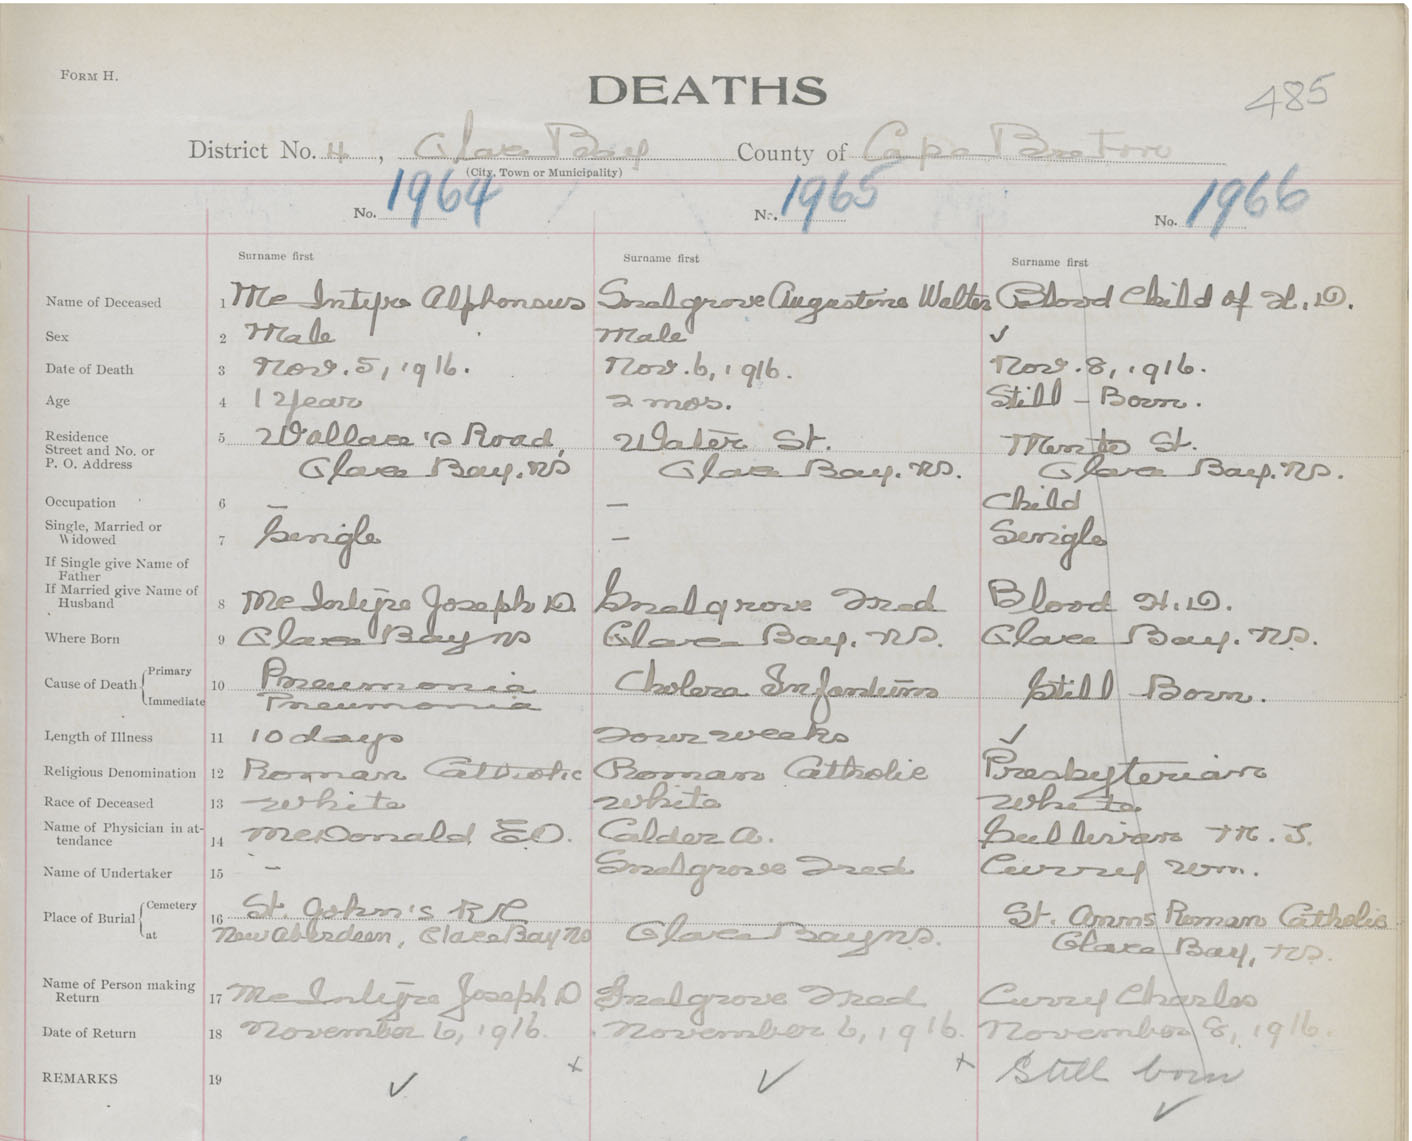 FORM H.
DEATHS
485
District No. 4, Glace Bay County of Cape Breton
(City, Town or Municipality)
No. 1964 No. 1965 No. 1966
Surname first Surname first Surname first
Name of Deceased 1 McIntyre Alphonsus Snelgrove Augustine Walter Blood Child of H. D.
Sex 2 Male Male ✓
Date of Death 3 Nov. 5, 1916. Nov. 6, 1916. Nov. 8, 1916.
Age 4 1 year 2 mos. Still-Born.
Residence 5 Wallace's Road, Water St. Minto St.
Street and No. or
P. O. Address Glace Bay. NS Glace Bay. NS. Glace Bay. NS.
Occupation 6 – – Child
Single, Married or
Widowed 7 Single – Single
If Single give Name of
Father
If Married give Name of
Husband 8 McIntyre Joseph D. Snelgrove Fred Blood H. D.
Where Born 9 Glace Bay NS Glace Bay. NS. Glace Bay. NS.
Cause of Death Primary 10 Pneumonia Cholera Infantum Still-Born.
Immediate Pneumonia
Length of Illness 11 10 days Four weeks ✓
Religious Denomination 12 Roman Catholic Roman Catholic Presbyterian
Race of Deceased 13 White White White
Name of Physician in at-
tendance 14 McDonald E.O. Calder A. Sullivan M. J.
Name of Undertaker 15 – Snelgrove Fred Curry Wm.
Place of Burial Cemetery 16 St. John's RC St. Anns Roman Catholic
at New Aberdeen, Glace Bay NS Glace Bay NS. Glace Bay, NS.
Name of Person making
Return 17 McIntyre Joseph D Snelgrove Fred Curry Charles
Date of Return 18 November 6, 1916. November 6, 1916. November 8, 1916.
REMARKS 19 ✓ x ✓ x Still born
✓